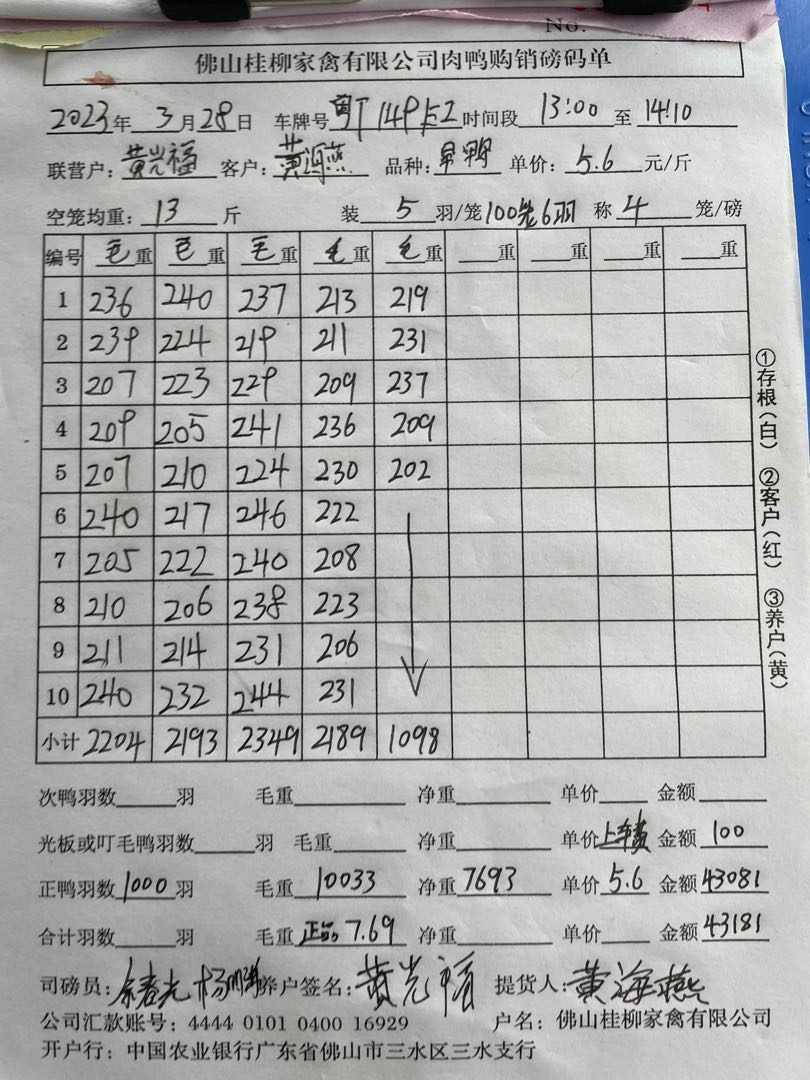 No.
佛山桂柳家禽有限公司肉鸭购销磅码单
2023年 3月28日 车牌号 粤T149 时间段 13:00 至 14:10
联营户:黄光福 客户:黄海燕 品种: 单价:5.6 元/斤
空笼均重:13 斤 装 5 羽/笼 100笼6羽 称 4 笼/磅
编号 毛重 毛重 毛重 毛重 毛重 重 重 重 重
1 236 240 237 213 219
2 239 224 219 211 231
3 207 223 229 209 237
4 209 205 241 236 209
5 207 210 224 230 202
6 240 217 246 222
7 205 222 240 208
8 210 206 238 223
9 211 214 231 206
10 240 232 244 231
小计 2204 2193 2349 2189 1098
次鸭羽数 羽 毛重 净重 单价 金额
光板或叮毛鸭羽数 羽 毛重 净重 单价 上车费 金额 100
正鸭羽数 1000 羽 毛重 10033 净重 7693 单价 5.6 金额 43081
合计羽数 羽 毛重 7.69 净重 单价 金额 43181
司磅员: 养户签名:黄光福 提货人:黄海燕
公司汇款账号:4444 0101 0400 16929 户名:佛山桂柳家禽有限公司
开户行:中国农业银行广东省佛山市三水区三水支行
①存根(白) ②客户(红) ③养户(黄)